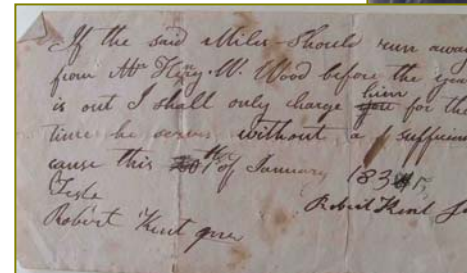 If the said Miles Should run away
from Mr Henry. W. Wood before the year
is out I shall only charge him for the
time he serves without a sufficien
cause this of January 183
Teste
Robert Kent Ju
Robert Kent